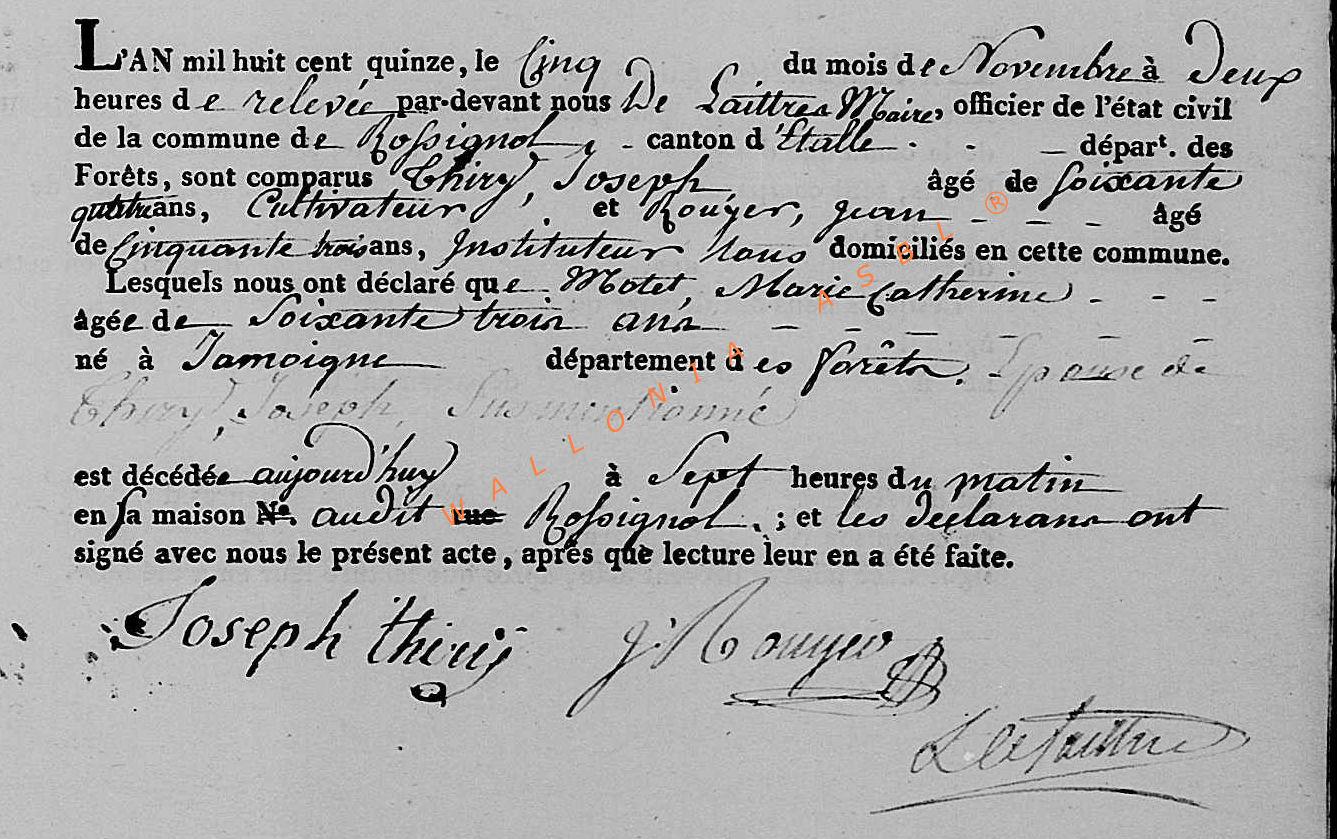 L'AN mil huit cent quinze, le Cinq du mois de Novembre à Deux
heures de relevée par-devant nous De Laittres Maire, officier de l'état civil
de la commune de Rossignol, - canton d'Etalle - - — départ. des
Forêts, sont comparus Thiry, Joseph, âgé de soixante
quatre ans, Cultivateur, et Rouyer, jean - - - âgé
de Cinquante trois ans, Instituteur tous domiciliés en cette commune.
Lesquels nous ont déclaré que Motet, Marie Catherine - - -
âgée de Soixante trois ans - - - -
né à Jamoigne département des forêts. Epouse de
Thiry, Joseph, Susmentionné
est décédée aujourd'huy à Sept heures du matin
en sa maison N°. audit rue Rossignol. ; et les déclarans ont
signé avec nous le présent acte, après que lecture leur en a été faite.
Joseph thiry j. Rouyer
WALLONIA ASBL ®